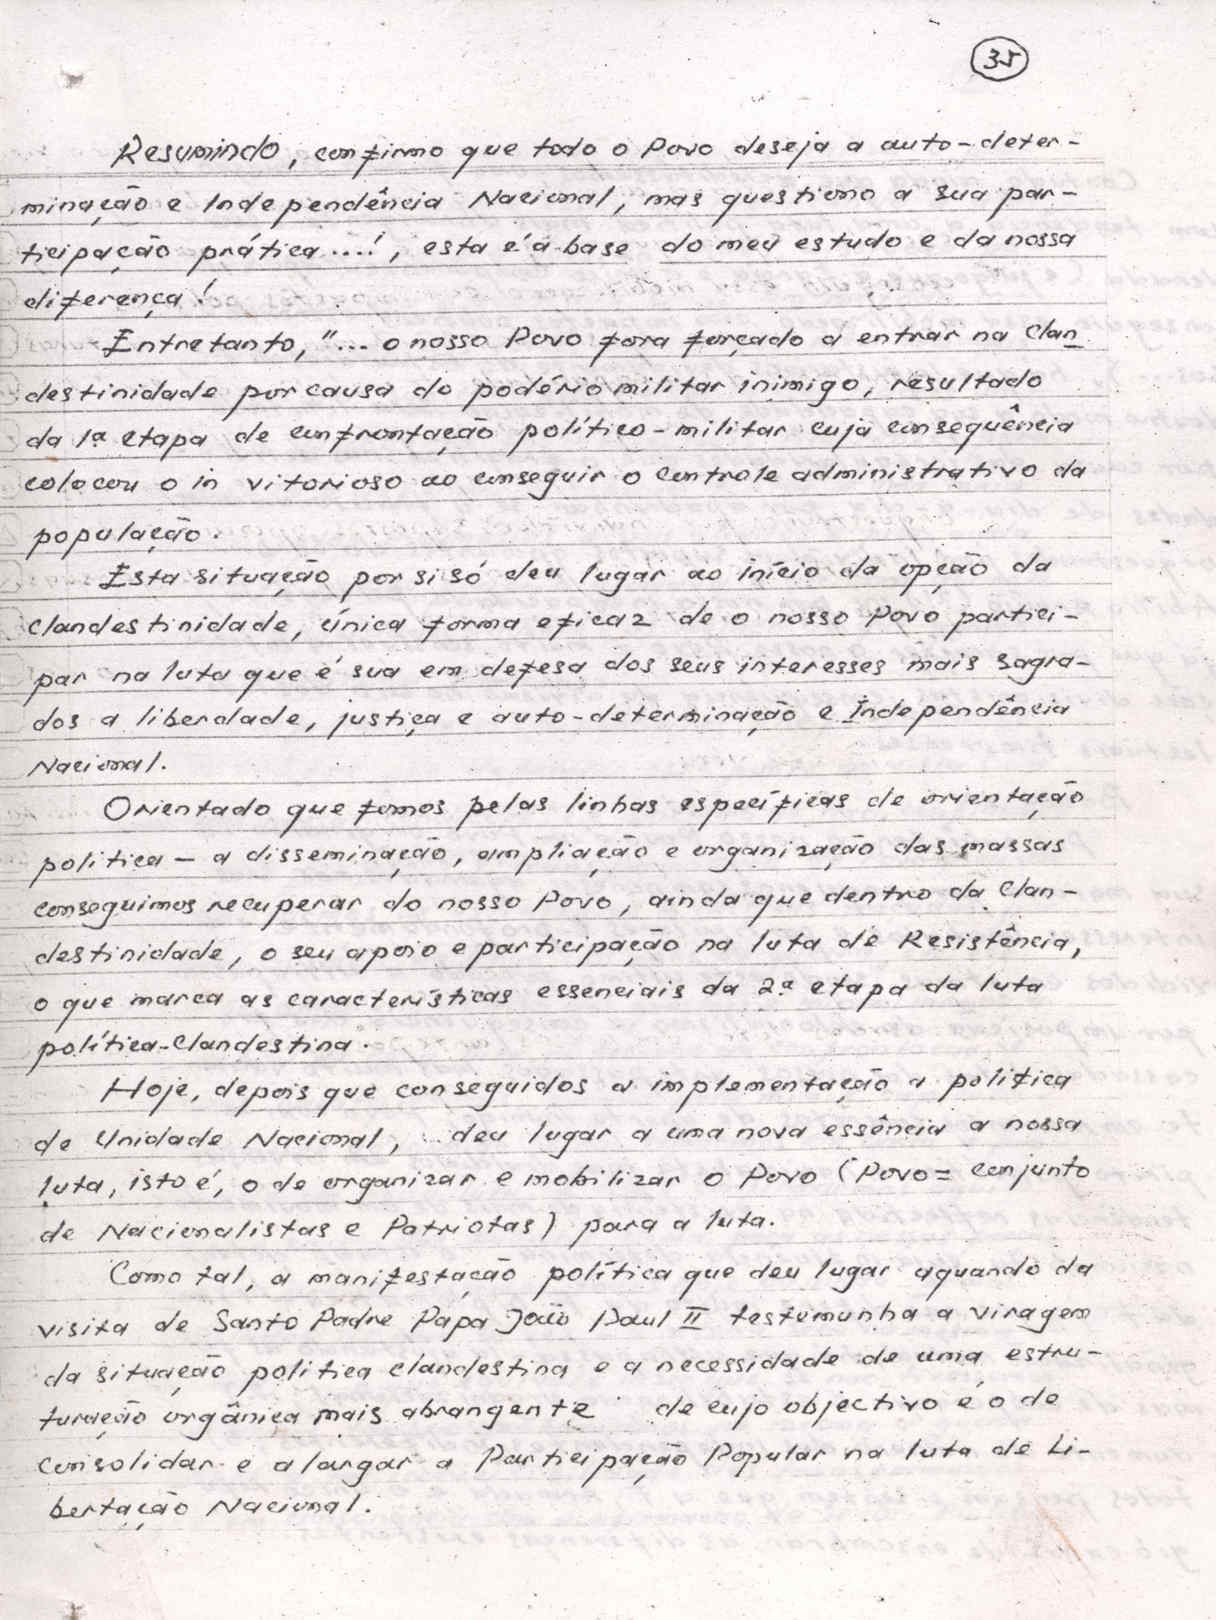 35
Resumindo, confirmo que todo o Povo deseja a auto-deter-
minação e Independência Nacional, mas questiono a sua par-
ticipação prática...!, esta é a base do meu estudo e da nossa
diferença!
Entretanto, "... o nosso Povo fora forçado a entrar na Clan
destinidade por causa do podério militar inimigo, resultado
da 1ª etapa de confrontação político-militar cuja consequência
colocou o in vitorioso ao conseguir o controle administrativo da
população.
Esta situação por si só deu lugar ao início da opção da
clandestinidade, única forma eficaz de o nosso Povo partici-
par na luta que é sua em defesa dos seus interesses mais sagra-
dos a liberdade, justiça e auto-determinação e Independência
Nacional.
Orientado que fomos pelas linhas específicas de orientação
politica - a disseminação, ampliação e organização das massas
conseguimos recuperar do nosso Povo, ainda que dentro da Clan-
destinidade, o seu apoio e participação na luta de Resistência,
o que marca as características essenciais da 2ª etapa da luta
política-Clandestina.
Hoje, depois que conseguidos a implementação a politica
de Unidade Nacional, deu lugar a uma nova essência a nossa
luta, isto é, o de organizar e mobilizar o Povo (Povo = conjunto
de Nacionalistas e Patriotas) para a luta.
Como tal, a manifestação política que deu lugar aquando da
visita de Santo Padre Papa João Paul II testemunha a viragem
da situação politica clandestina e a necessidade de uma estru-
turação orgânica mais abrangente de cujo objectivo é o de
consolidar e alargar a Participação Popular na luta de Li-
bertação Nacional.